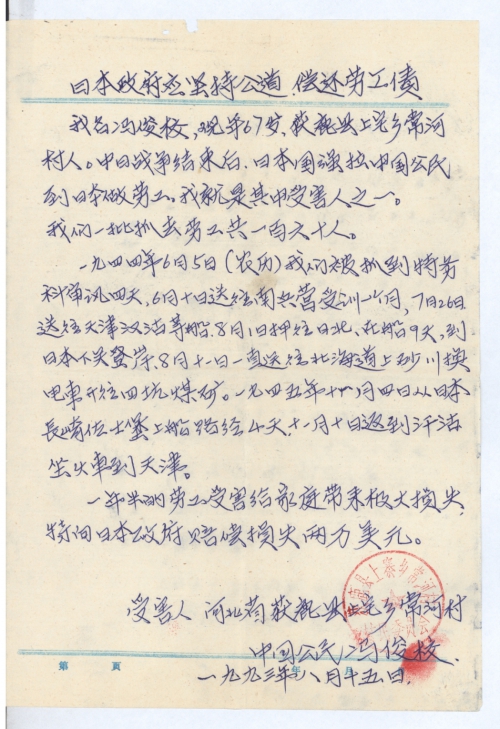 日本政府应坚持公道 偿还劳工债
我名冯俊校,现年67岁,获鹿县上寨乡常河
村人。中日战争结束后,日本国强拉中国公民
到日本做劳工。我就是其中受害人之一。
我们一批抓去劳工共一百六十人。
一九四四年6月5日(农历)我们被抓到特务
科审讯四天,6月十日送往南兵营受训一个月,7月26日
送往天津汉沽等船,8月1日押往日北,在船9天,到
日本下关登岸,8月十一日一直送往北海道上砂川换
电车开往四坑煤矿。一九四五年十一月四日从日本
長崎佐士堡上船 4天,十一月十日返到汗沽
坐火车到天津。
一年半的劳工受害给家庭带来极大损失,
特向日本政府赔偿损失两万美元。
受害人 河北省获鹿县上寨乡常河村
中国公民 冯俊校
一九九三年八月十五日.
第 页
年 月 日
县上寨乡常河